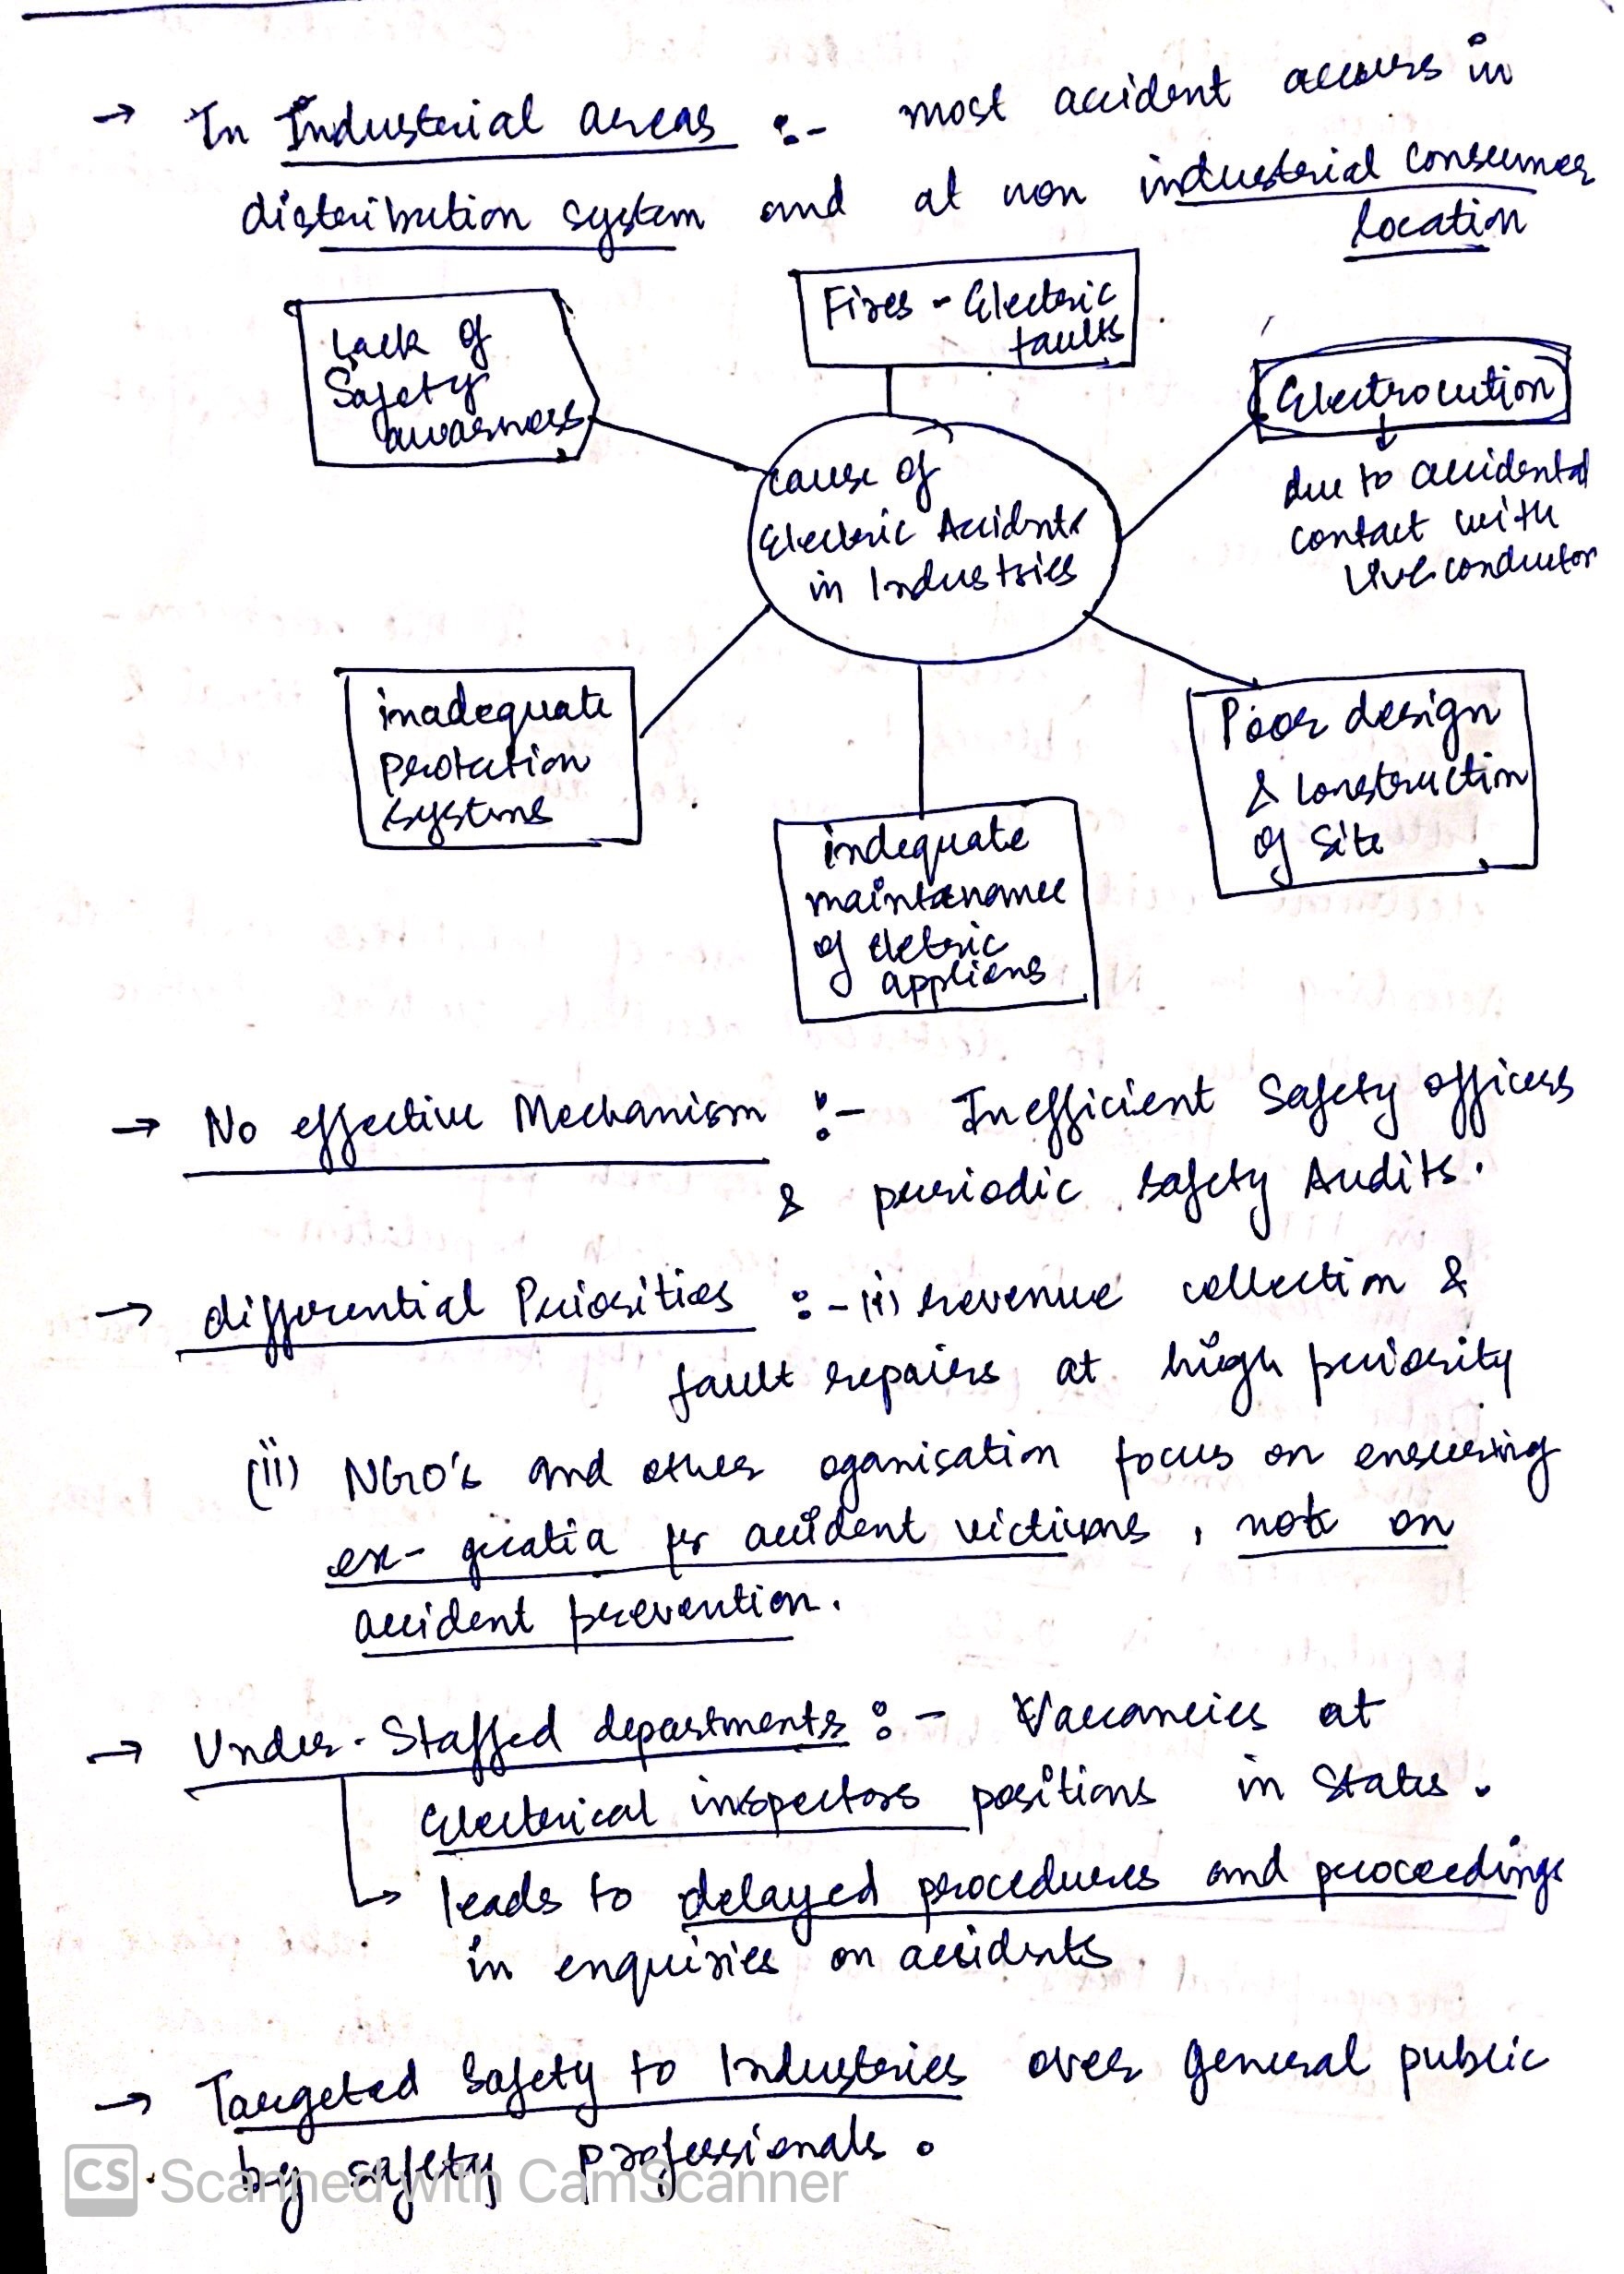 → In Industrial areas :- most accident accurs in
distribution system and at non industrial consumer
location
Fires - Electric
faults
Lack of
Safety
awarness
Electrocution
↓
due to accidental
contact with
live conductor
cause of
Electric Accidents
in Industries
inadequate
protection
systems
indequate
maintanance
of eletric
appliens
Poor design
& Construction
of Site
→ No effective Mechanism :- Inefficient Safety officers
& periodic safety Audits.
→ differential Priorities :- (i) revenue collection &
fault repairs at high priority
(ii) NGO's and other oganisation focus on ensuring
ex- gratia for accident victims, not on
accident prevention.
→ Under-Staffed departments :- Vacancies at
Electrical inspectors positions in States.
↳ leads to delayed procedures and proceedings
in enquiries on accidents
→ Targeted Safety to Industries over general public
by safety professionals.
CS Scanned with CamScanner